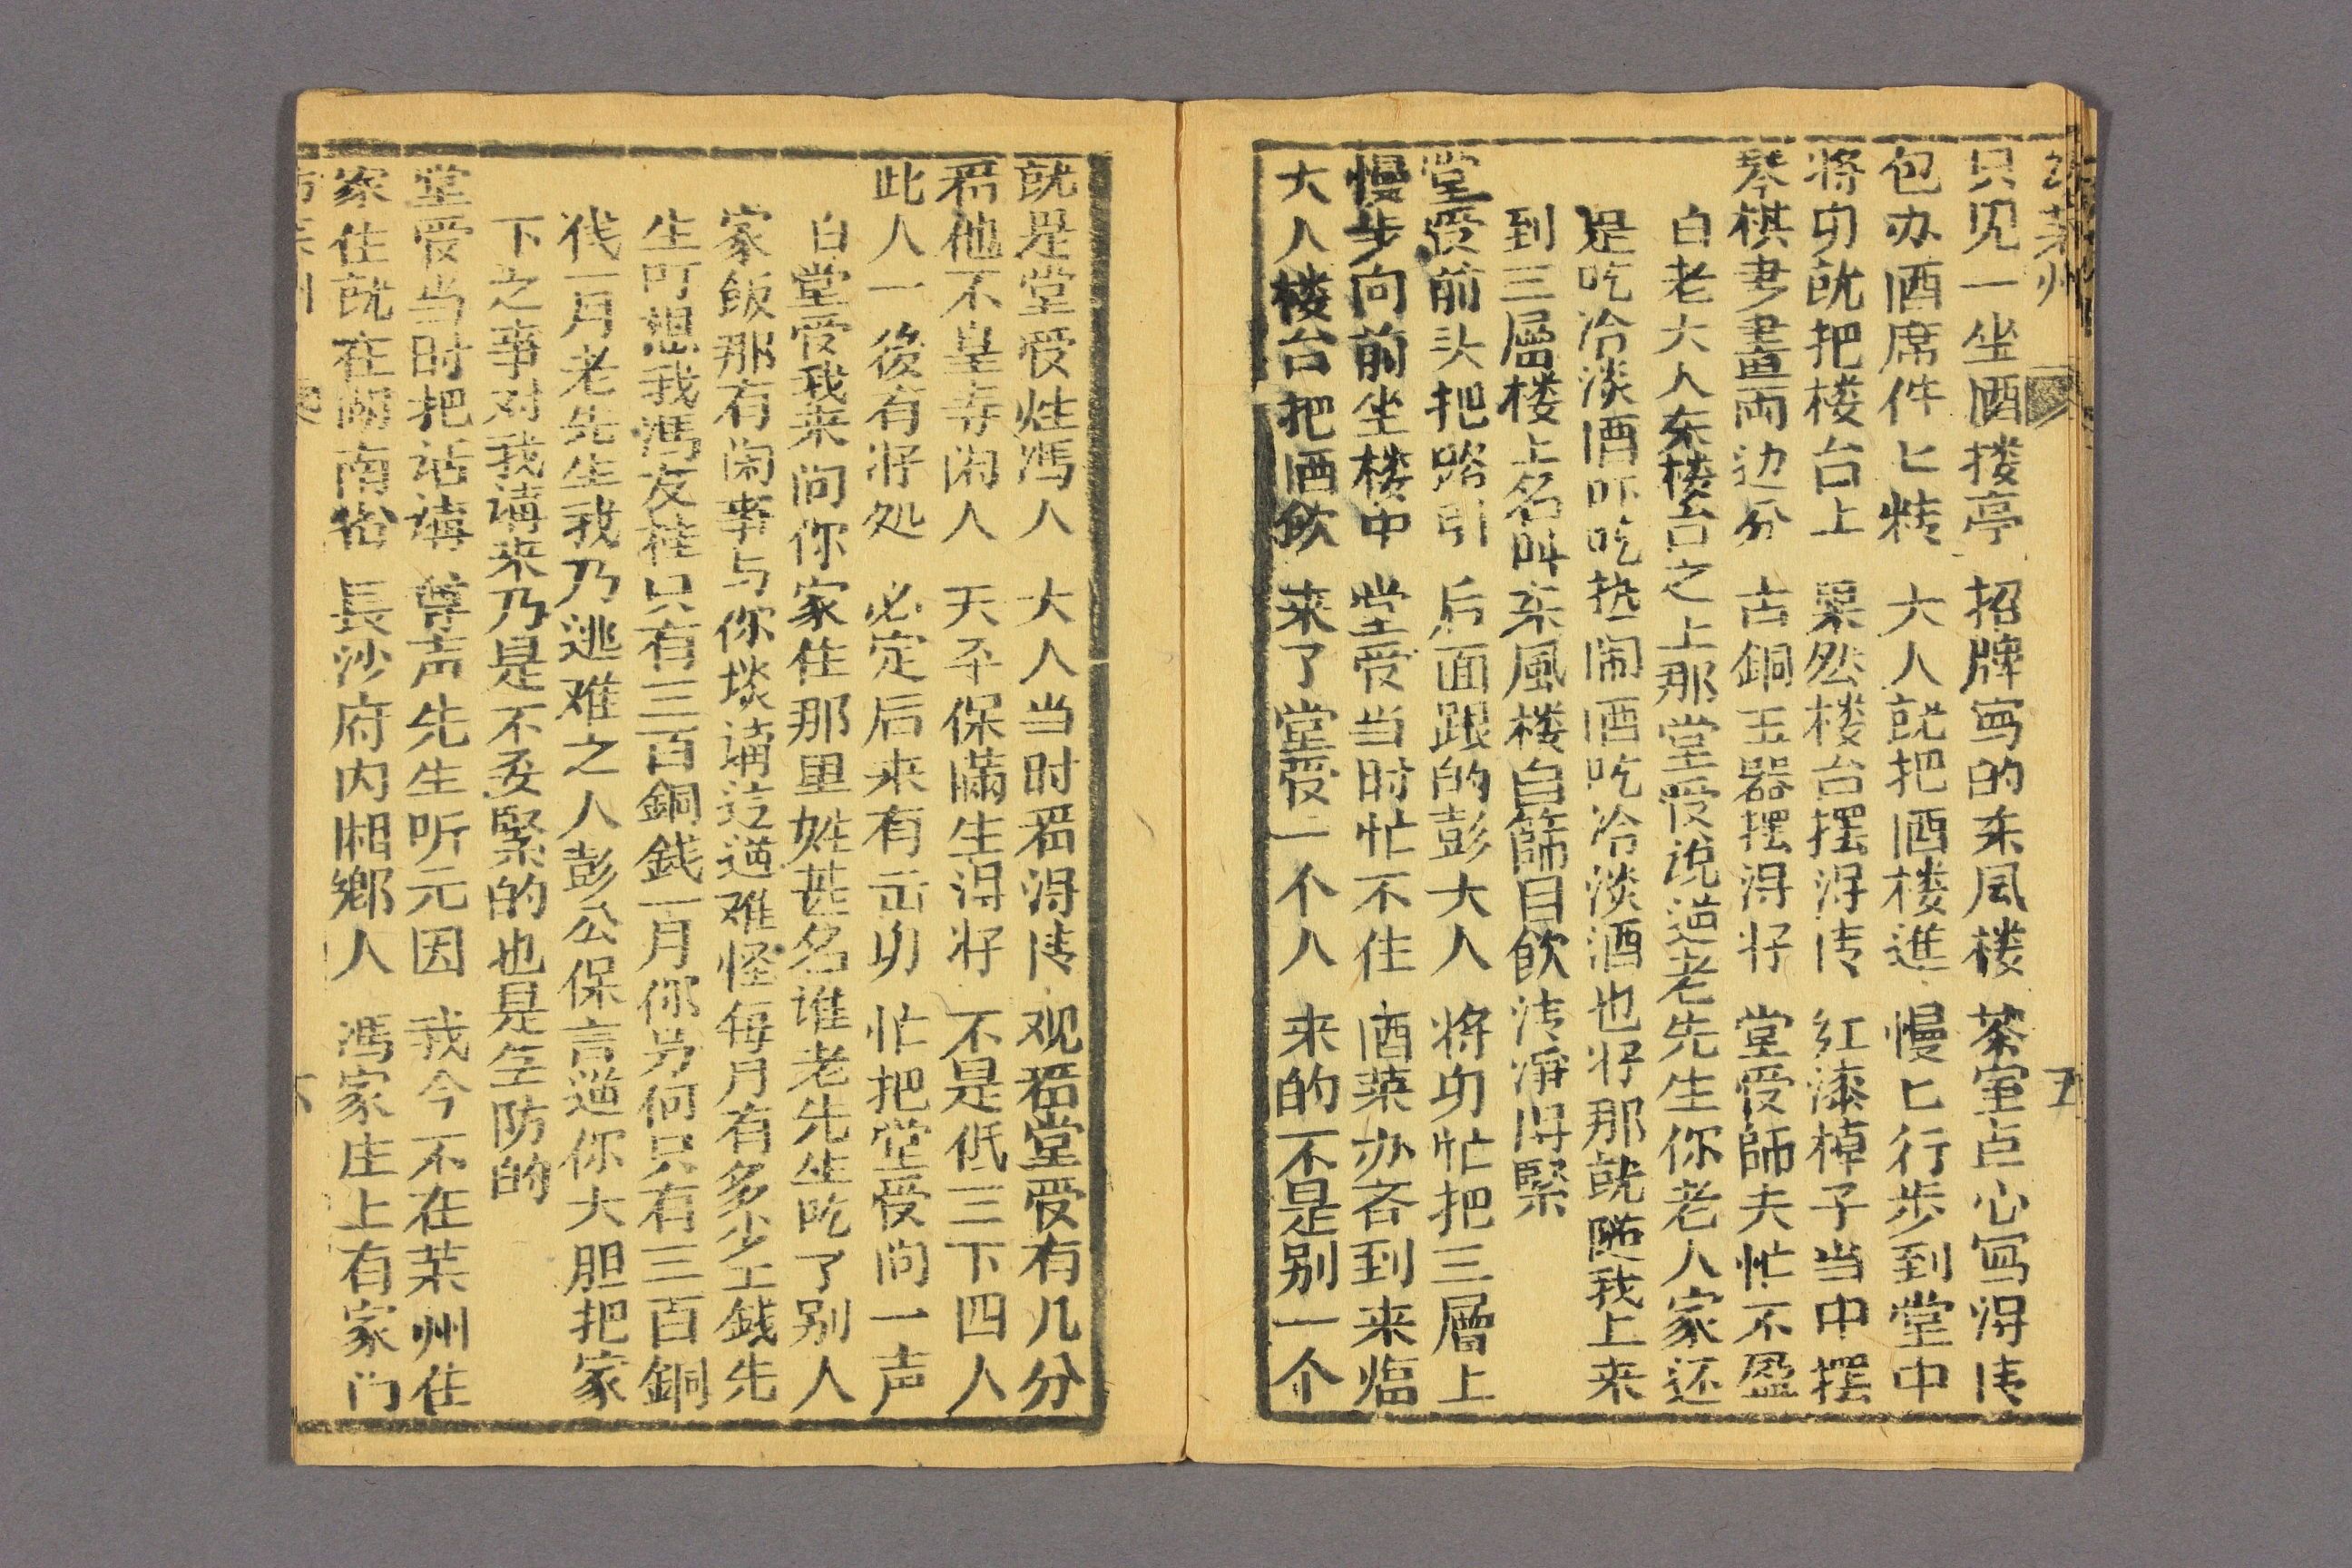 访莱州 五
只见一坐酒楼亭 招牌写的东风楼 茶室点心写得清
包办酒席件匕精 大人就把酒楼進 慢匕行步到堂中
将身就把楼台上 果然楼台摆得清 红漆棹子当中摆
琴棋書畫両边分 古銅玉器摆得好 堂受師夫忙不盈
白老大人东楼台之上那堂受说道老先生你老人家还
是吃冷淡酒吓吃热闹酒吃冷淡酒也好那就随我上来
到三層楼上名叫东風楼自篩目飲清淨得緊
堂受前头把路引 后面跟的彭大人 将身忙把三層上
慢步向前坐楼中 堂受当时忙不住 酒菜办齐到来临
大人楼台把酒飲 来了堂受一个人 来的不是别一个
就是堂受姓馮人 大人当时看得清 观看堂受有几分
看他不是寺闲人 天平保瞞生得好 不是低三下四人
此人一後有好处 必定后来有出身 忙把堂受问一声
白堂受我来问你家住那里姓甚名谁老先生吃了别人
家飯那有闲事与你談講这道难怪每月有多少工錢先
生可想我馮友桂只有三百銅錢一月你为何只有三百銅
伐一月老先生我乃逃难之人彭公保言道你大胆把家
下之事对我講来乃是不要緊的也是全防的
堂受当时把话講 尊声先生听元因 我今不在莱州住
家住就在湖南省 長沙府内湘鄉人 馮家庄上有家门